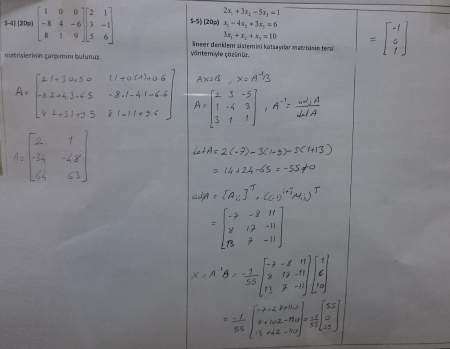 S-4) (20p) [1 0 0; -8 4 -6; 8 1 9] [2 1; 3 -1; 5 6]
matrislerinin çarpımını bulunuz.
A = [2.1+3.0+5.0 1.1+0.(-1)+0.6; -8.2+4.3-6.5 -8.1-4.1-6.6; 8.2+3.1+9.5 8.1-1.1+9.6]
A = [2 1; -34 -48; 64 53]
2x₁ + 3x₂ - 5x₃ = 1
S-5) (20p) x₁ - 4x₂ + 3x₃ = 6
3x₁ + x₂ + x₃ = 10
lineer denklem sistemini katsayılar matrisinin tersi
yöntemiyle çözünüz.
Ax=B , x = A⁻¹B
A = [2 3 -5; 1 -4 3; 3 1 1] , A⁻¹ = adjA / detA
detA = 2(-7)-3(1-9)-5(1+13)
= 14+24-65 = -55≠0
adjA = [Aij]ᵀ = ((-1)ⁱ⁺ʲ Mij)ᵀ
= [-7 -8 11; 8 17 -11; 13 7 -11]
x = A⁻¹B = -1/55 [-7 -8 11; 8 17 -11; 13 7 -11] [1; 6; 10]
= -1/55 [-7-48+110; 8+102-110; 13+42-110] = -1/55 [55; 0; 55]
= [-1; 0; 1]